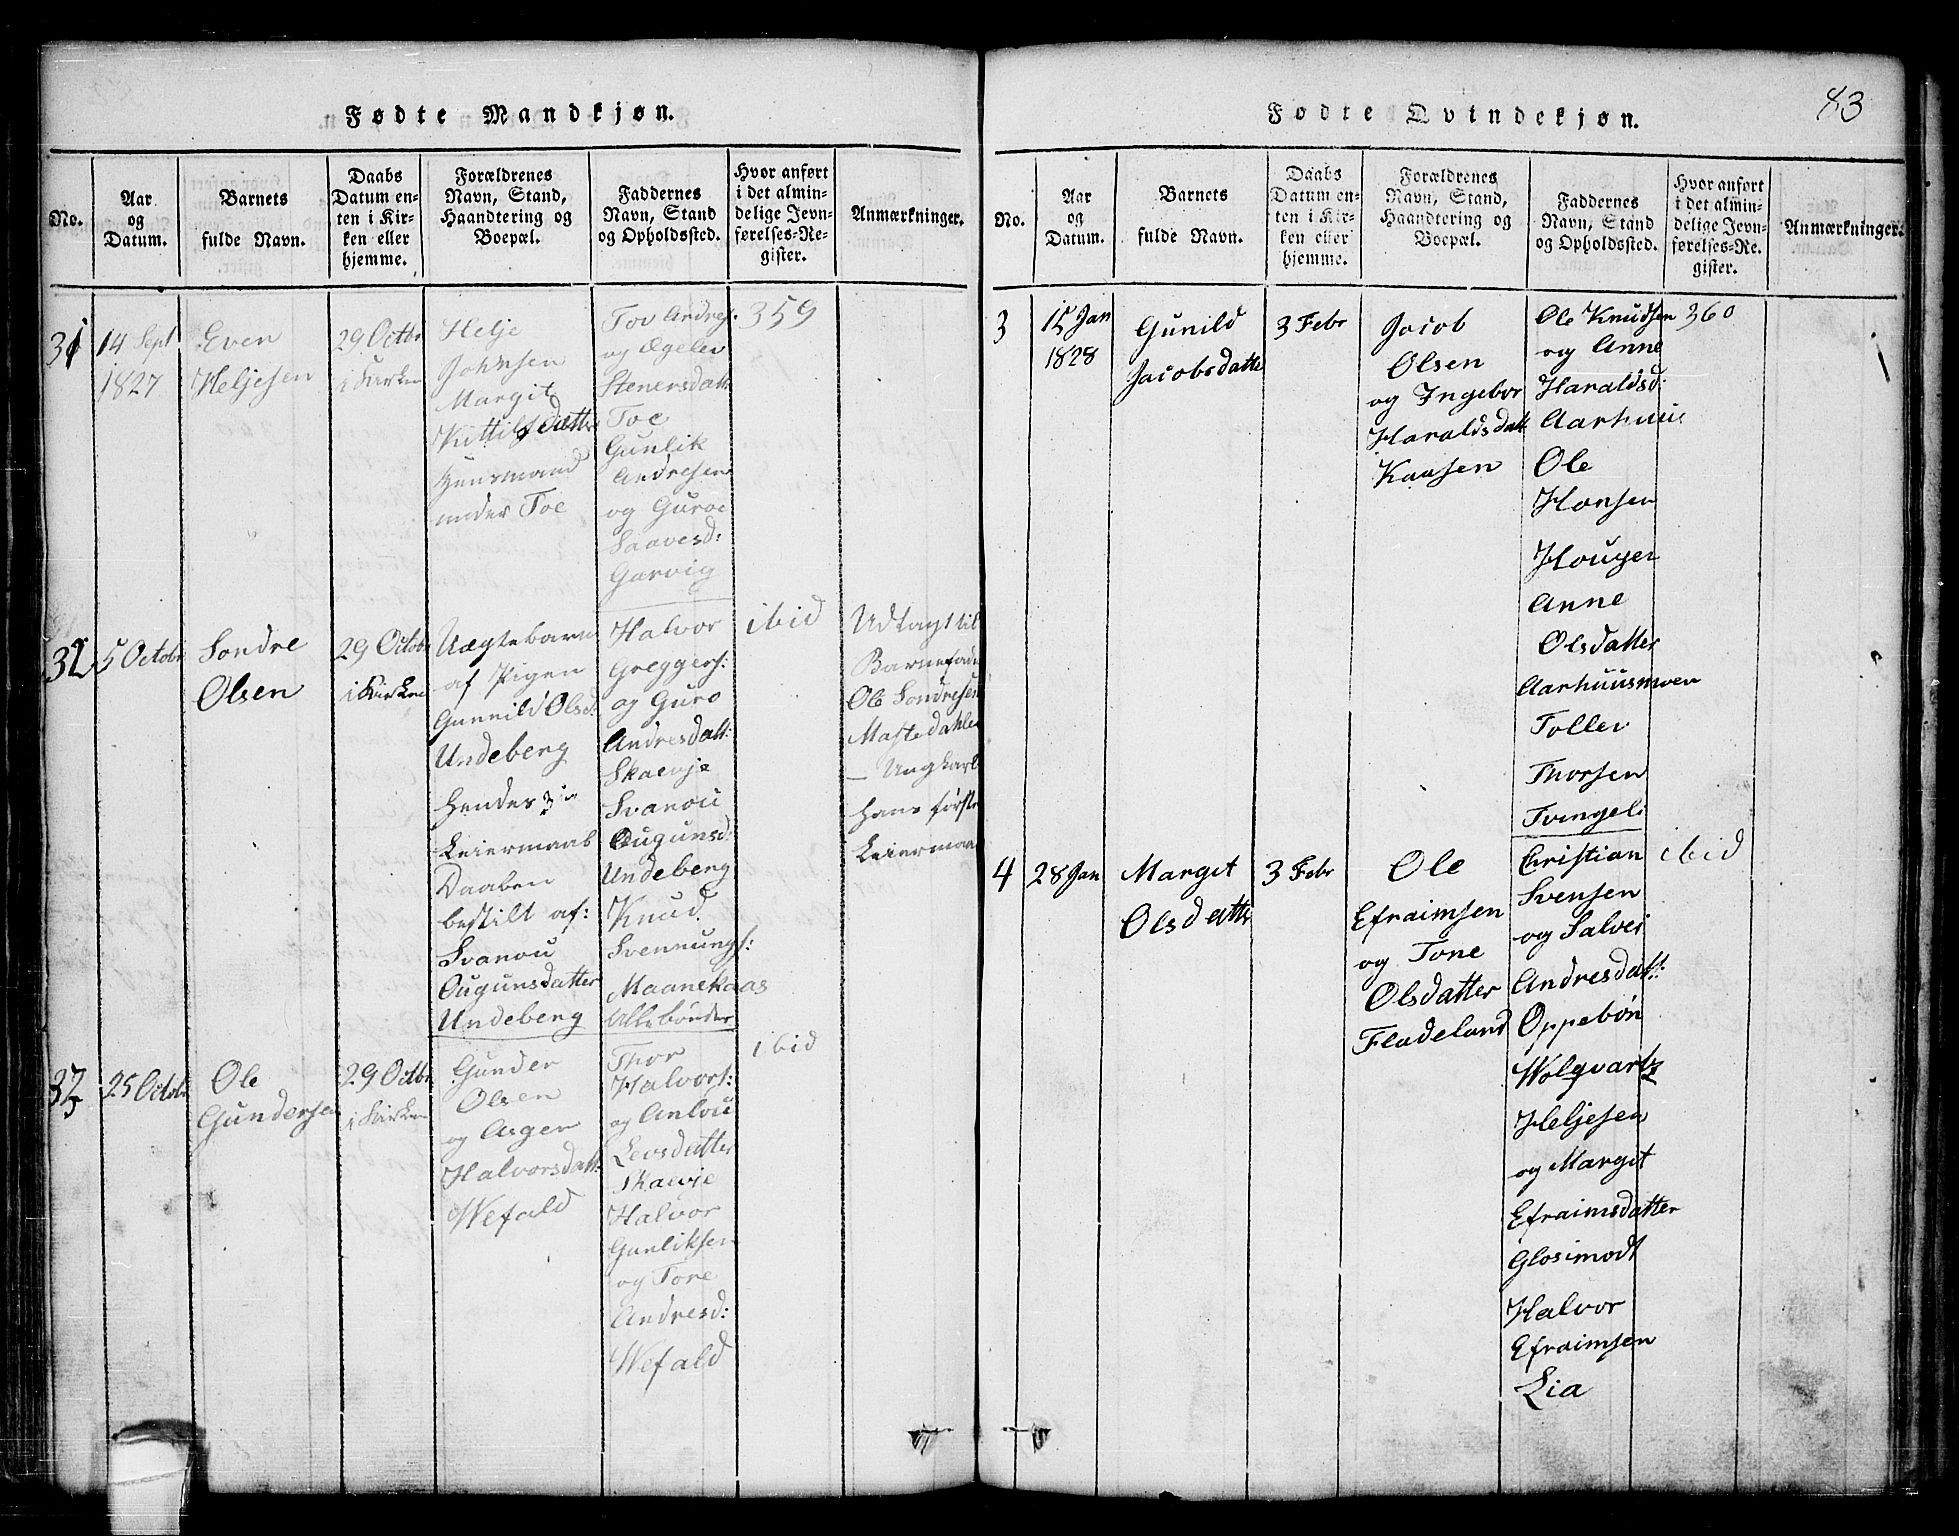 Fødte Mandkjøn.
No.
Aar
og
Datum.
Barnets
fulde Navn.
Daabs
Datum en-
ten i Kir-
ken eller
hjemme.
Forældrenes
Navn, Stand,
Haandtering og
Boepæl.
Faddernes
Navn, Stand
og Opholdssted.
Hvor anført
i det almin-
delige Jevn-
førelses-Re-
gister.
Anmærkninger.
31
14 Sept
1827
Even
Heljesen
29 Octbr
i Kirken
Helje
Johnsen
Margit
Kittilsdatter
Huusmand
under Toe
Tov Andres.
og Ægelev
Stenersdatt
Toe
Gunlik
Andresen
og Guroe
Saavesd:
Garvig
359
32
5 Octobr
Sondre
Olsen
29 Octobr
i Kirken
Uægtebarn
af Pigen
Gunnild Olsd:
Undeberg
Hendes 3die
Leiermaal
Daaben
bestilt af:
Svanou
Ougunsdatter
Undeberg
Halvor
Greggers:
og Guro
Andresdatt:
Skaevje
Svanou
Ougunsd:
Undeberg
Knud
Svennungs:
Maanekaas
Alle bønder
ibid
Udlagt til
Barnefader
Ole Sondresen
Mastedahlen
– Ungkarl
hans første
Leiermaal
33
25 Octobr
Ole
Gundersen
29 Octbr
i Kirken
Gunder
Olsen
og Asger
Halvorsdatt:
Wefald
Thor
Halvors:
og Anlou
Levsdatter
Skaevje
Halvor
Gunliksen
og Tone
Andresd:
Wefald
ibid
83
Fødte Qvindekjøn.
No.
Aar
og
Datum.
Barnets
fulde Navn.
Daabs
Datum en-
ten i Kir-
ken eller
hjemme.
Forældrenes
Navn, Stand,
Haandtering og
Boepæl.
Faddernes
Navn, Stand
og Opholdssted.
Hvor anført
i det almin-
delige Jevn-
førelses-Re-
gister.
Anmærkninger.
3
15 Jan
1828
Gunild
Jacobsdatter
3 Febr
Jacob
Olsen
og Ingebor
Haraldsdatt
Kaasen
Ole Knudsen
og Anne
Haraldsd:
Aarhuus
Ole
Hansen
Hougen
Anne
Olsdatter
Aarhuusmoen
Tollev
Thorsen
Tvengeli
360
4
28 Jan
Margit
Olsdatter
3 Febr
Ole
Efraimsen
og Tone
Olsdatter
Fladeland
Christian
Svensen
og Salvei
Andresdatt:
Oppebøn
Wolqvartz
Heljesen
og Margit
Efraimsdatter
Glosimodt
Halvor
Efraimsen
Lia
ibid